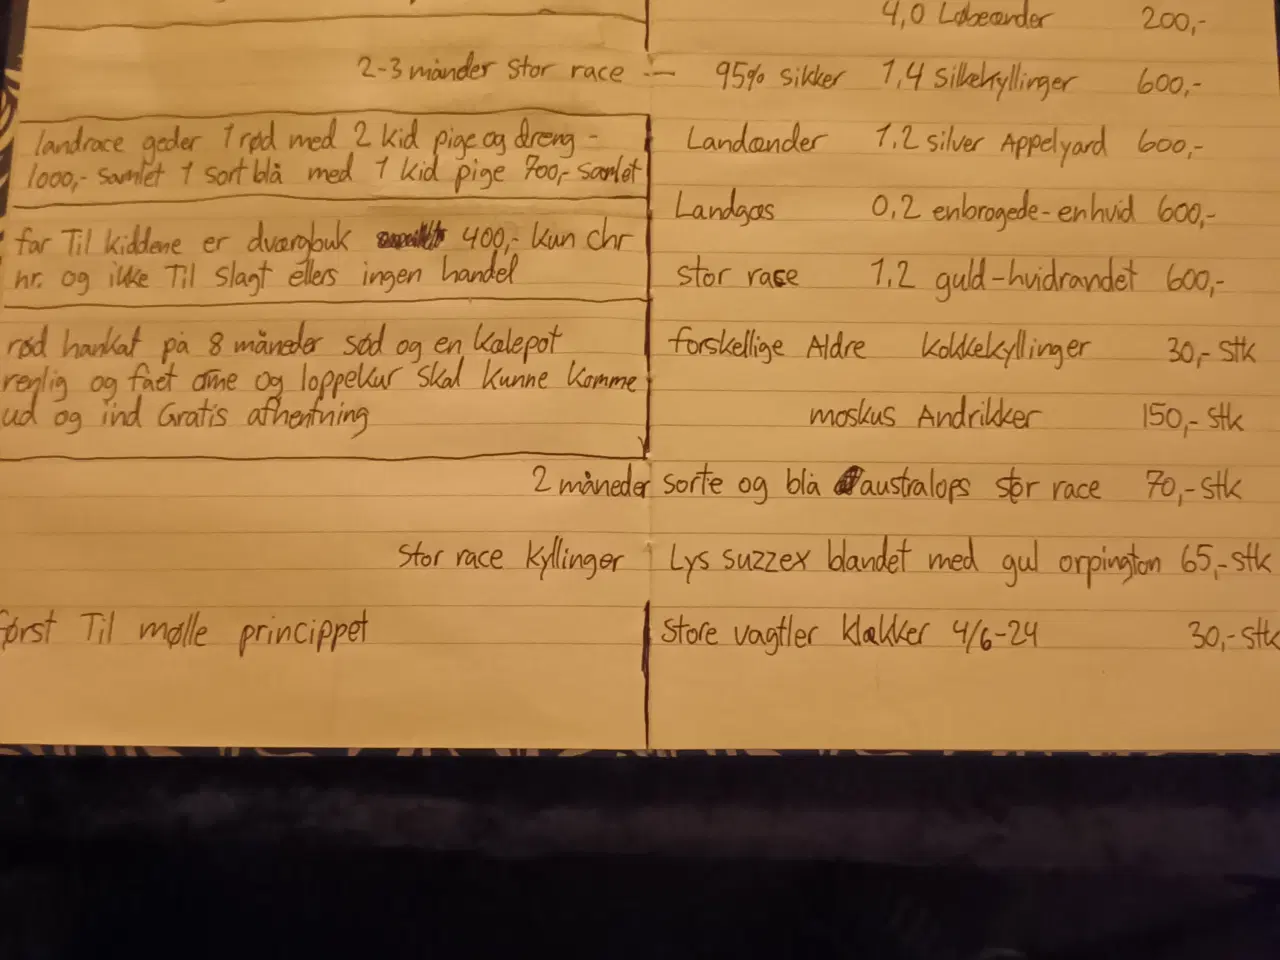 4,0 Løbeænder 200,-
2-3 månder stor race — 95% sikker 1,4 silkekyllinger 600,-
landrace geder 1 rød med 2 kid pige og dreng -
1000,- samlet 1 sort blå med 1 kid pige 700,- samlet
far Til kiddene er dværgbuk 400,- kun chr
nr. og ikke Til slagt ellers ingen handel
rød hankat på 8 måneder sød og en kælepot
renlig og fået orme og loppekur skal kunne komme
ud og ind Gratis afhentning
Landænder 1,2 silver Appelyard 600,-
Landgæs 0,2 enbrogede-enhvid 600,-
stor race 1,2 guld-hvidrandet 600,-
forskellige Aldre kokkekyllinger 30,- stk
moskus Andrikker 150,- stk
2 måneder sorte og blå australops stor race 70,- stk
Stor race kyllinger Lys suzzex blandet med gul orpington 65,- stk
først Til mølle princippet
Store vagtler klækker 4/6-24 30,- stk